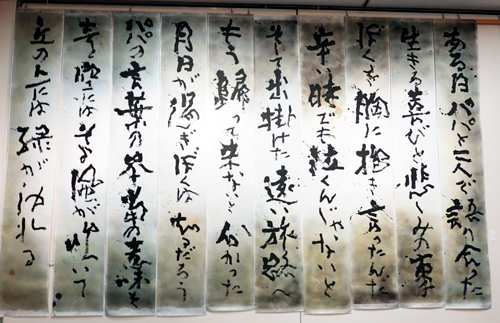 ある日パパと二人で語り合った
生きる喜びと悲しみの事
ぼくを胸に抱き言ったんだ
辛い時でも泣くんじゃないと
そして出掛けた遠い旅路へ
もう帰って来ないと分かった
月日が過ぎぼくは知るだろう
パパの言葉の本当の意味を
青空にはそよ風が吹いて
丘の上には緑がゆれる